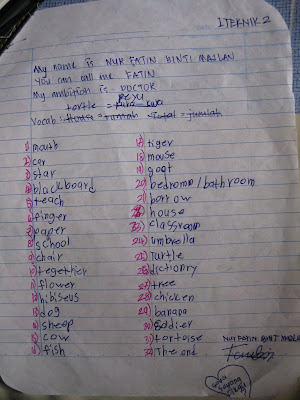 1 TEKNIK 2
My name is NUR FATIN BINTI MAZLAN
You can call me FATIN
My ambition is DOCTOR
PEYU
tortle = kura kura
Vocab: House = rumah Total = jumlah
1) mouth
2) car
3) star
4) blackboard
5) teach
6) finger
7) paper
8) school
9) chair
10) together
11) flower
12) hibiscus
13) dog
14) sheep
15) cow
16) fish
17) tiger
18) mouse
19) goat
20) bedroom / bathroom
21) borrow
22) house
23) classroom
24) umbrella
25) Turtle
26) dictionry
27) tree
28) chicken
29) banana
30) soldier
31) tortoise
32) The end
NUR FATIN BINTI MAZLAN
saya sayang cikgu